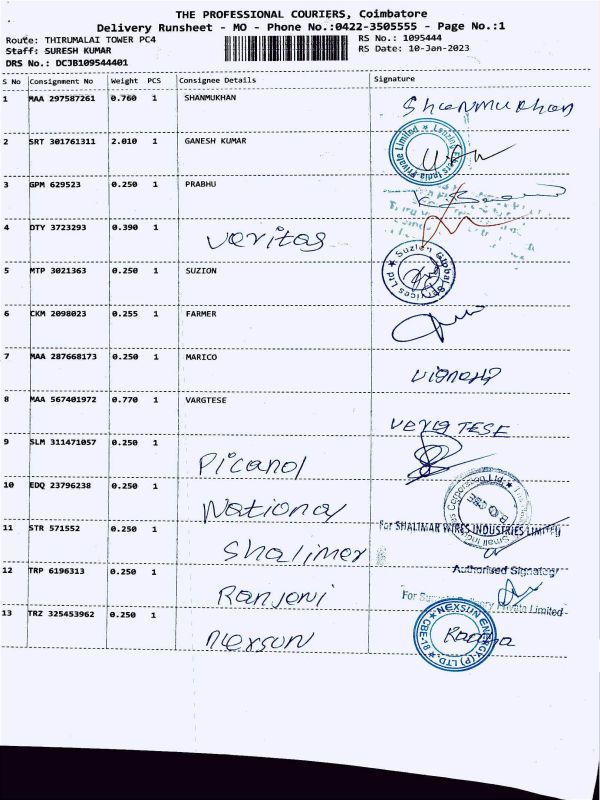 THE PROFESSIONAL COURIERS, Coimbatore
Delivery Runsheet - MO - Phone No.:0422-3505555 - Page No.:1
Route: THIRUMALAI TOWER PC4 RS No.: 1095444
Staff: SURESH KUMAR RS Date: 10-Jan-2023
DRS No.: DCJB109544401
S No Consignment No Weight PCS Consignee Details Signature
1 MAA 297587261 0.760 1 SHANMUKHAN Shanmukhan
2 SRT 301761311 2.010 1 GANESH KUMAR
Lenzing Fibers India Private Limited ★
3 GPM 629523 0.250 1 PRABHU
4 DTY 3723293 0.390 1 Veritas
5 MTP 3021363 0.250 1 SUZION
★ Suzlon Global Services Ltd
6 CKM 2098023 0.255 1 FARMER
7 MAA 287668173 0.250 1 MARICO Vignesh
8 MAA 567401972 0.770 1 VARGTESE Verg TESE
9 SLM 311471057 0.250 1 Picanol
10 EDQ 23796238 0.250 1 National
Small Corporation Ltd. ★
11 STR 571552 0.250 1 Shalimer
For SHALIMAR WIRES INDUSTRIES LIMITED
Authorised Signatory
12 TRP 6196313 0.250 1 Ranjani
For Private Limited
13 TRZ 325453962 0.250 1 Nexsun
★ NEXSUN ENERGY (P) LTD. ★ CBE-18